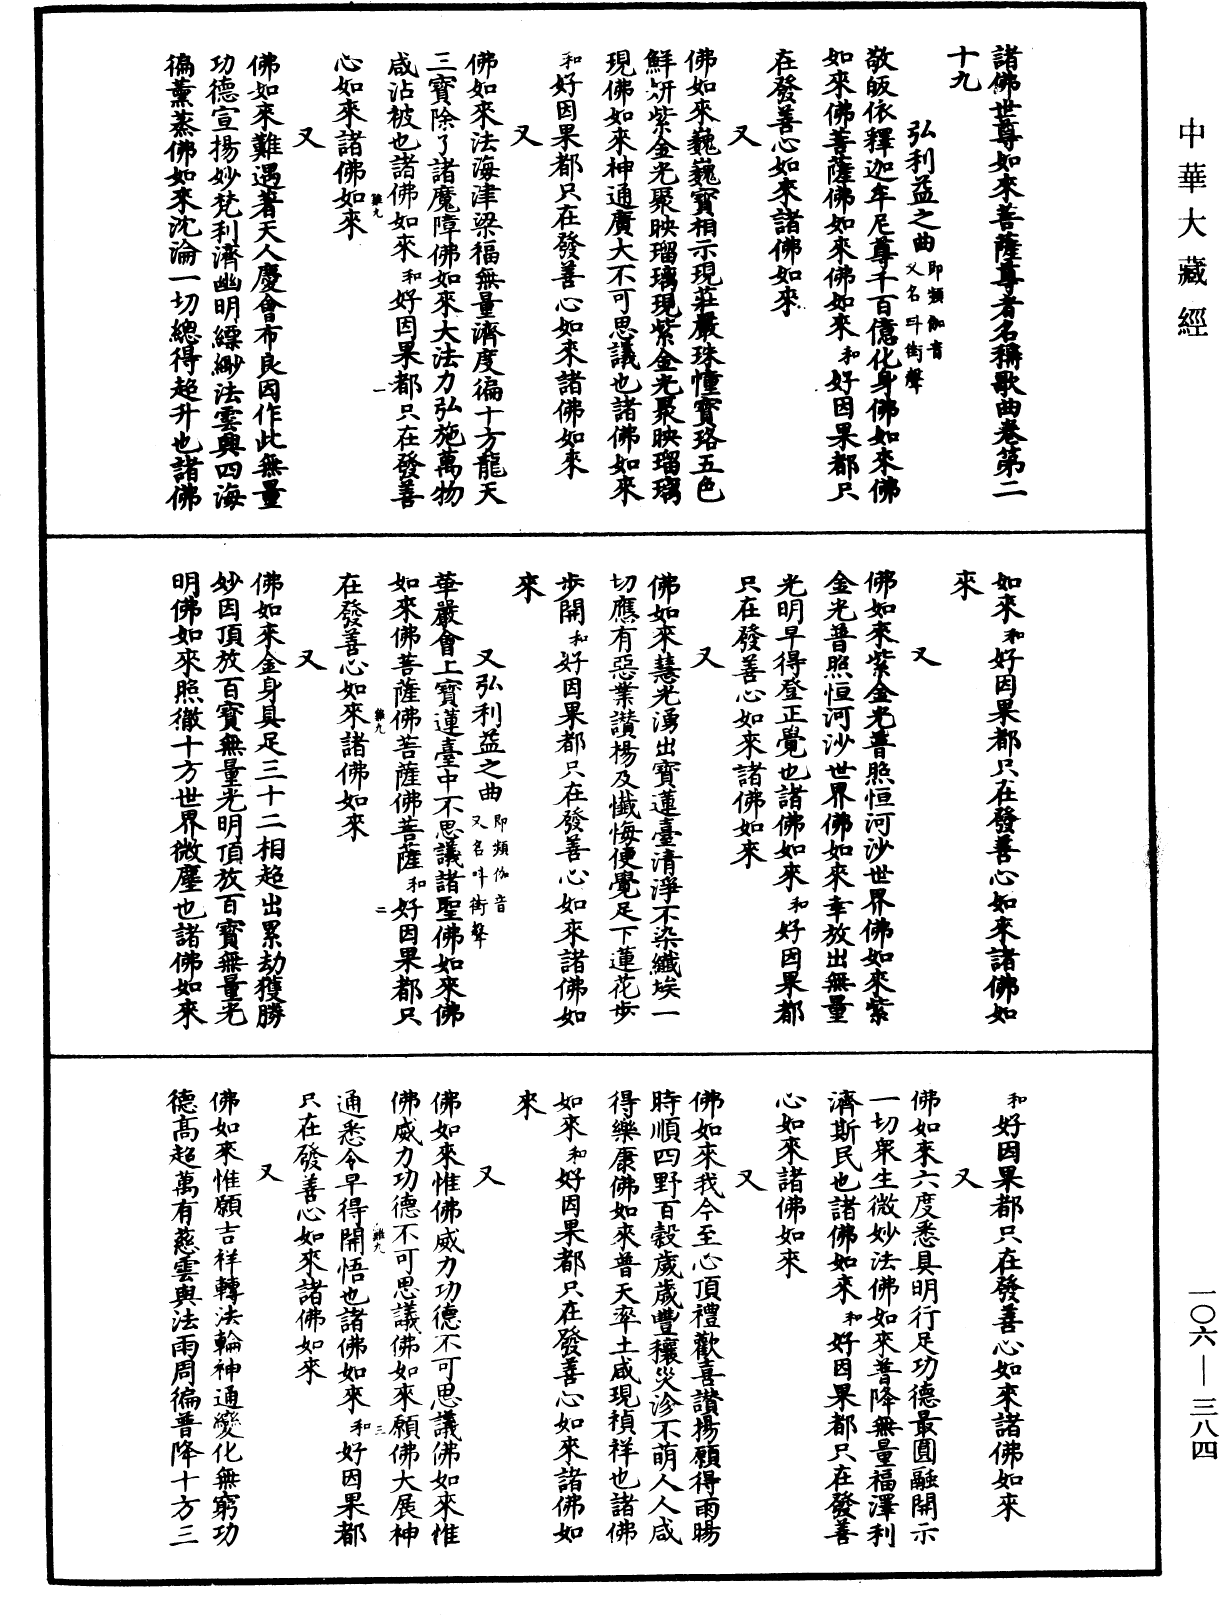 中華大藏經
諸佛世尊如來菩薩尊者名稱歌曲卷第二
十九
弘利益之曲即頻伽音又名叶街聲
敬皈依釋迦牟尼尊千百億化身佛如來佛
如來佛菩薩佛如來佛如來和好因果都只
在發善心如來諸佛如來
又
佛如來巍巍寶相示現莊嚴珠幢寶珞五色
鮮妍紫金光聚映瑠璃現紫金光聚映瑠璃
現佛如來神通廣大不可思議也諸佛如來
和好因果都只在發善心如來諸佛如來
又
佛如來法海津梁福無量濟度徧十方龍天
三寶除了諸魔障佛如來大法力弘施萬物
咸沾被也諸佛如來和好因果都只在發善
心如來諸佛如來
又
佛如來難遇著天人慶會布良因作此無量
功德宣揚妙梵利濟幽明縹緲法雲興四海
徧薰蒸佛如來沈淪一切總得超升也諸佛
如來和好因果都只在發善心如來諸佛如
來
又
佛如來紫金光普照恒河沙世界佛如來紫
金光普照恒河沙世界佛如來幸放出無量
光明早得登正覺也諸佛如來和好因果都
只在發善心如來諸佛如來
又
佛如來慧光湧出寶蓮臺清淨不染纖埃一
切應有惡業讃揚及懺悔便覺足下蓮花步
步開和好因果都只在發善心如來諸佛如
來
又弘利益之曲即頻伽音又名叶街聲
華嚴會上寶蓮臺中不思議諸聖佛如來佛
如來佛菩薩佛菩薩佛菩薩和好因果都只
在發善心如來諸佛如來
又
佛如來金身具足三十二相超出累劫獲勝
妙因頂放百寶無量光明頂放百寶無量光
明佛如來照徹十方世界微塵也諸佛如來
和好因果都只在發善心如來諸佛如來
又
佛如來六度悉具明行足功德最圓融開示
一切衆生微妙法佛如來普降無量福澤利
濟斯民也諸佛如來和好因果都只在發善
心如來諸佛如來
又
佛如來我今至心頂禮歡喜讃揚願得雨暘
時順四野百穀歲歲豐穰災沴不萌人人咸
得樂康佛如來普天率土咸現禎祥也諸佛
如來和好因果都只在發善心如來諸佛如
來
又
佛如來惟佛威力功德不可思議佛如來惟
佛威力功德不可思議佛如來願佛大展神
通悉令早得開悟也諸佛如來和好因果都
只在發善心如來諸佛如來
又
佛如來惟願吉祥轉法輪神通變化無窮功
德高超萬有慈雲與法雨周徧普降十方三
一〇六—三八四